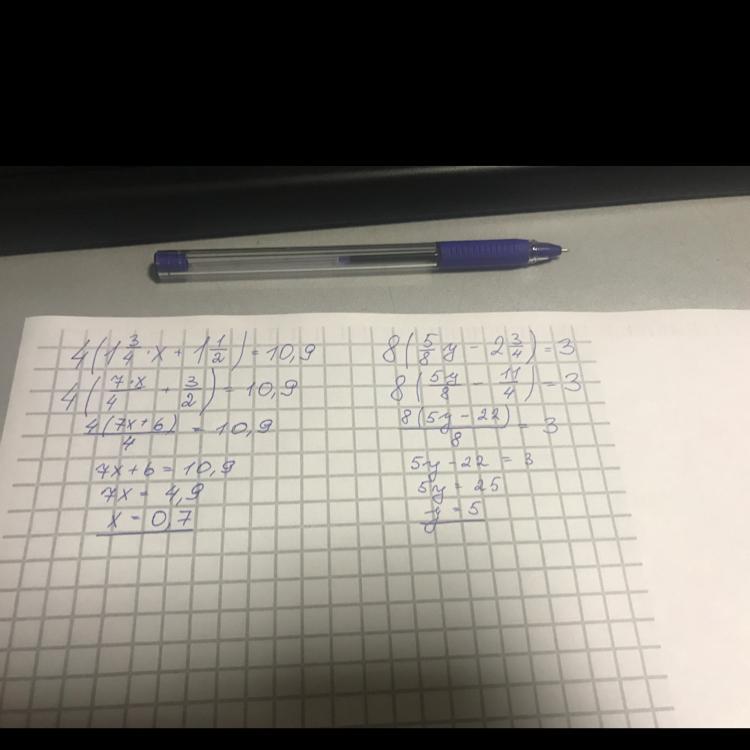 4(1 3/4 · x + 1 1/2) = 10,9
4(7·x/4 + 3/2) = 10,9
4(7x+6)/4 = 10,9
7x+6 = 10,9
7x = 4,9
x = 0,7
8(5/8 y - 2 3/4) = 3
8(5y/8 - 11/4) = 3
8(5y-22)/8 = 3
5y-22 = 3
5y = 25
y = 5